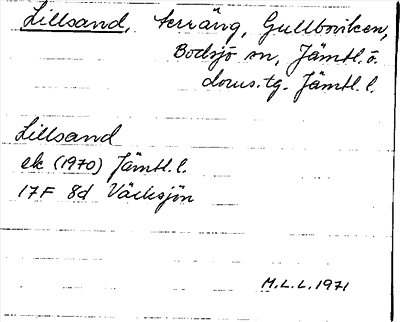 Lillsand, terräng, Gullboviken,
Bodsjö sn, Jämtl. ö.
doms.tg. Jämtl. l.
Lillsand
ek (1970) Jämtl. l.
17F 8d Väcksjön
M.L.L. 1971